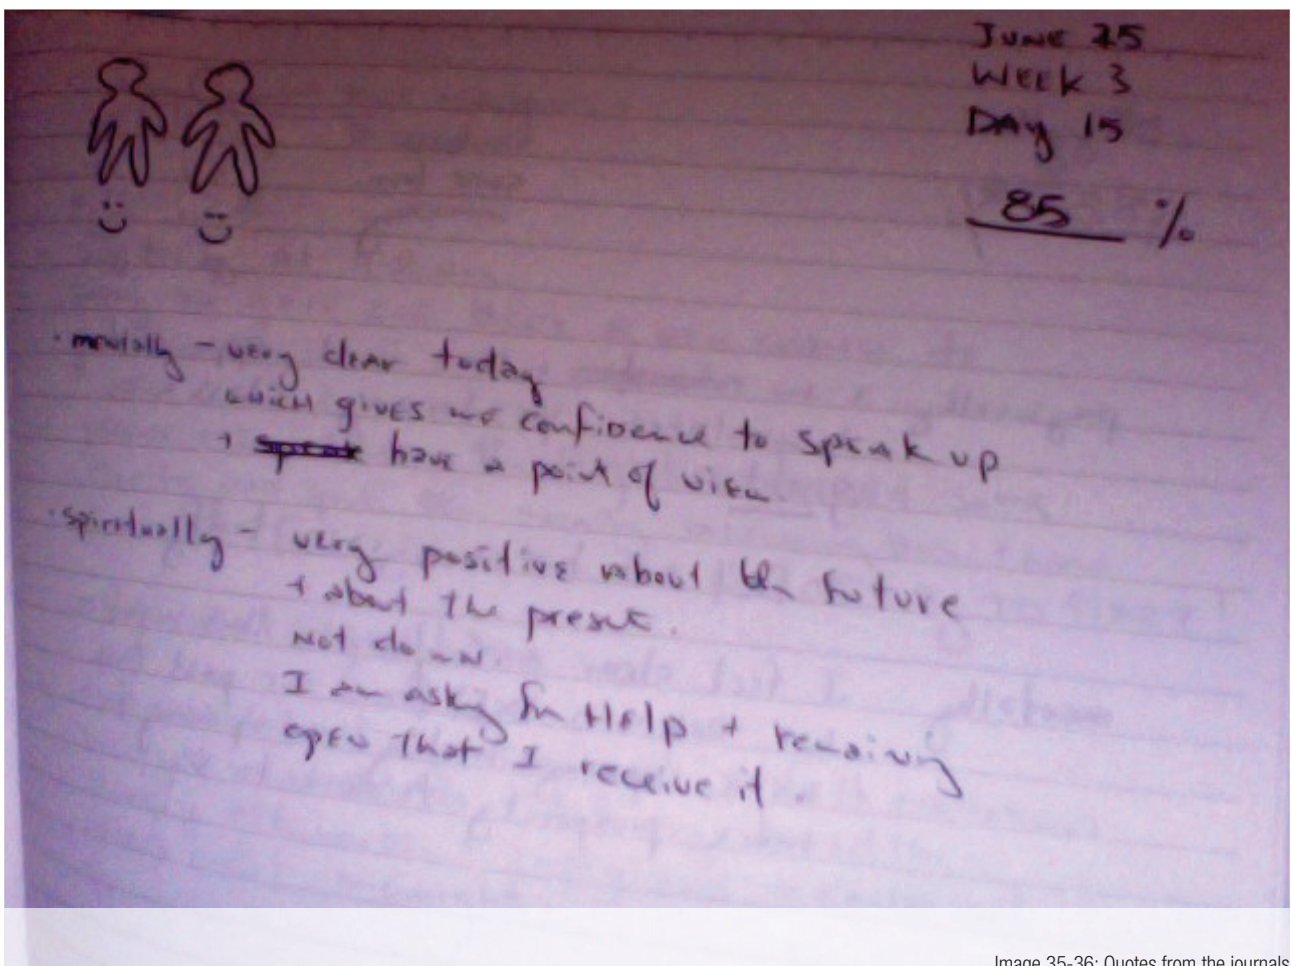 JUNE 25
WEEK 3
DAY 15
85 %
· mentally - very clear today
which gives me confidence to speak up
+ have a point of view.
· spiritually - very positive about the future
+ about the present.
Not down
I am asking for Help + remaining
open that I receive it.
Image 35-36: Quotes from the journals